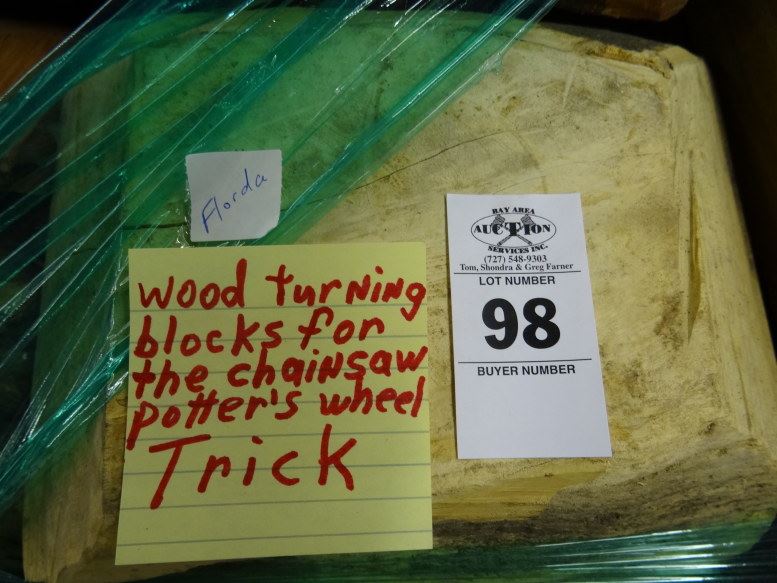 Florda
wood turning
blocks for
the chainsaw
potter's wheel
Trick
BAY AREA
AUCTION
SERVICES INC.
(727) 548-9303
Tom, Shondra & Greg Farner
LOT NUMBER
98
BUYER NUMBER